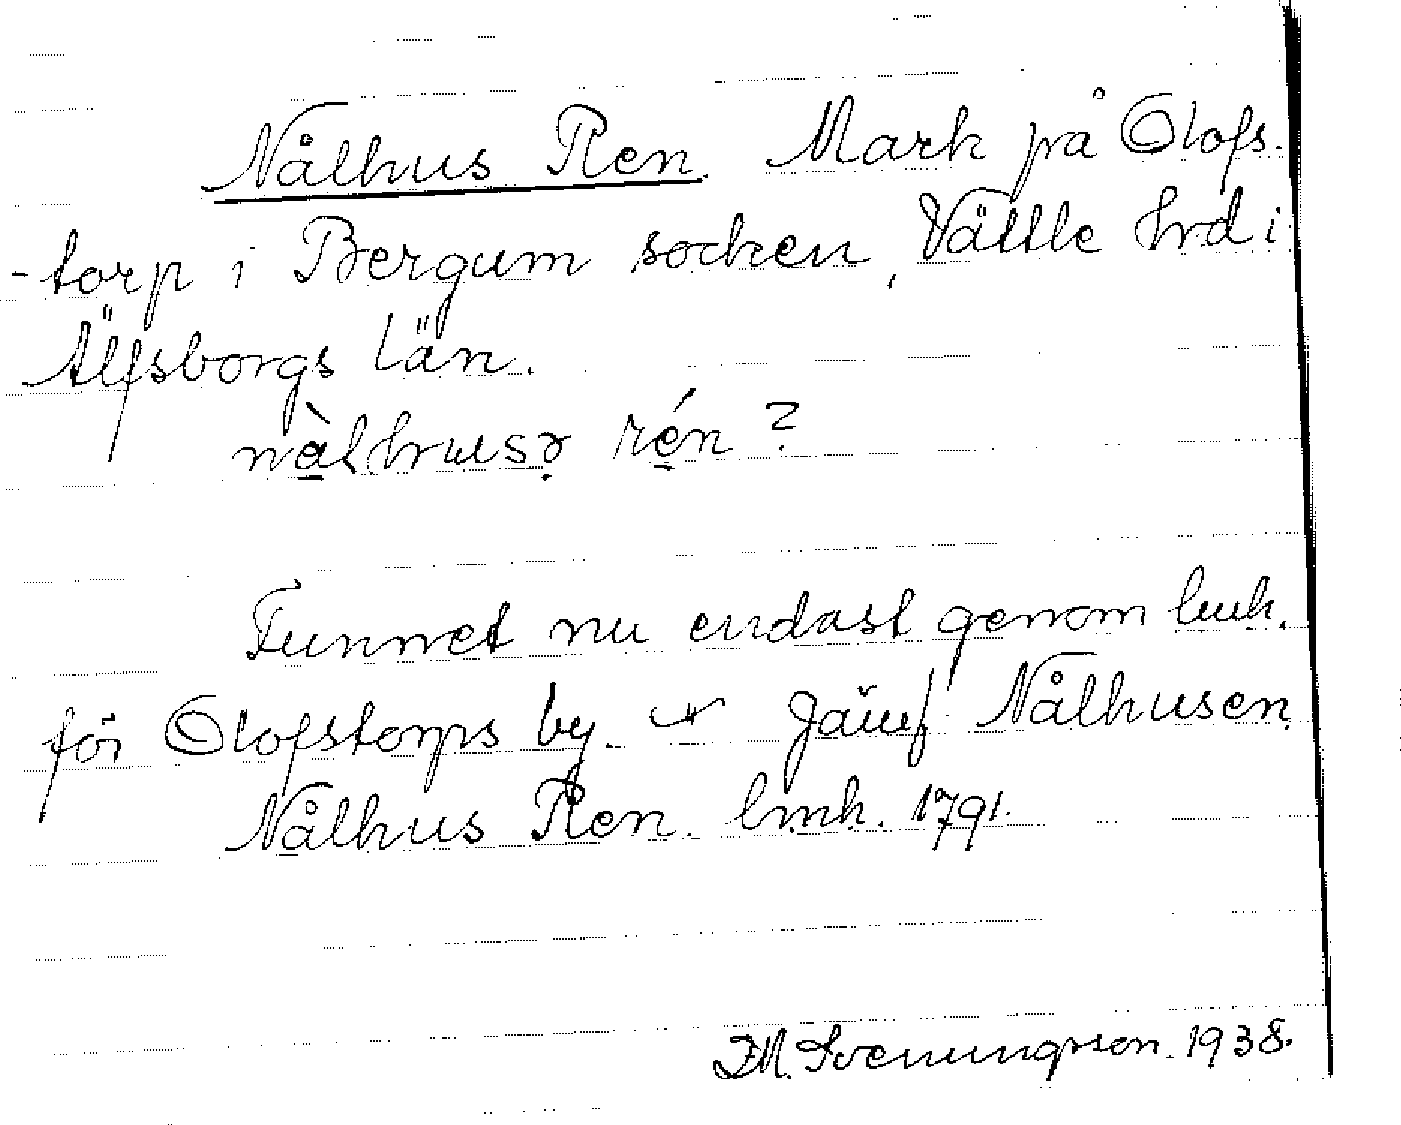 Nålhus Ren. Mark på Olofs-
-torp i Bergum socken, Vättle hrd i
Älfsborgs län.
nàlhusə rén?
Funnet nu endast genom lmh.
för Olofstorps by. Jämf Nålhusen
Nålhus Ren. lmh. 1791.
Svenungsson. 1938.